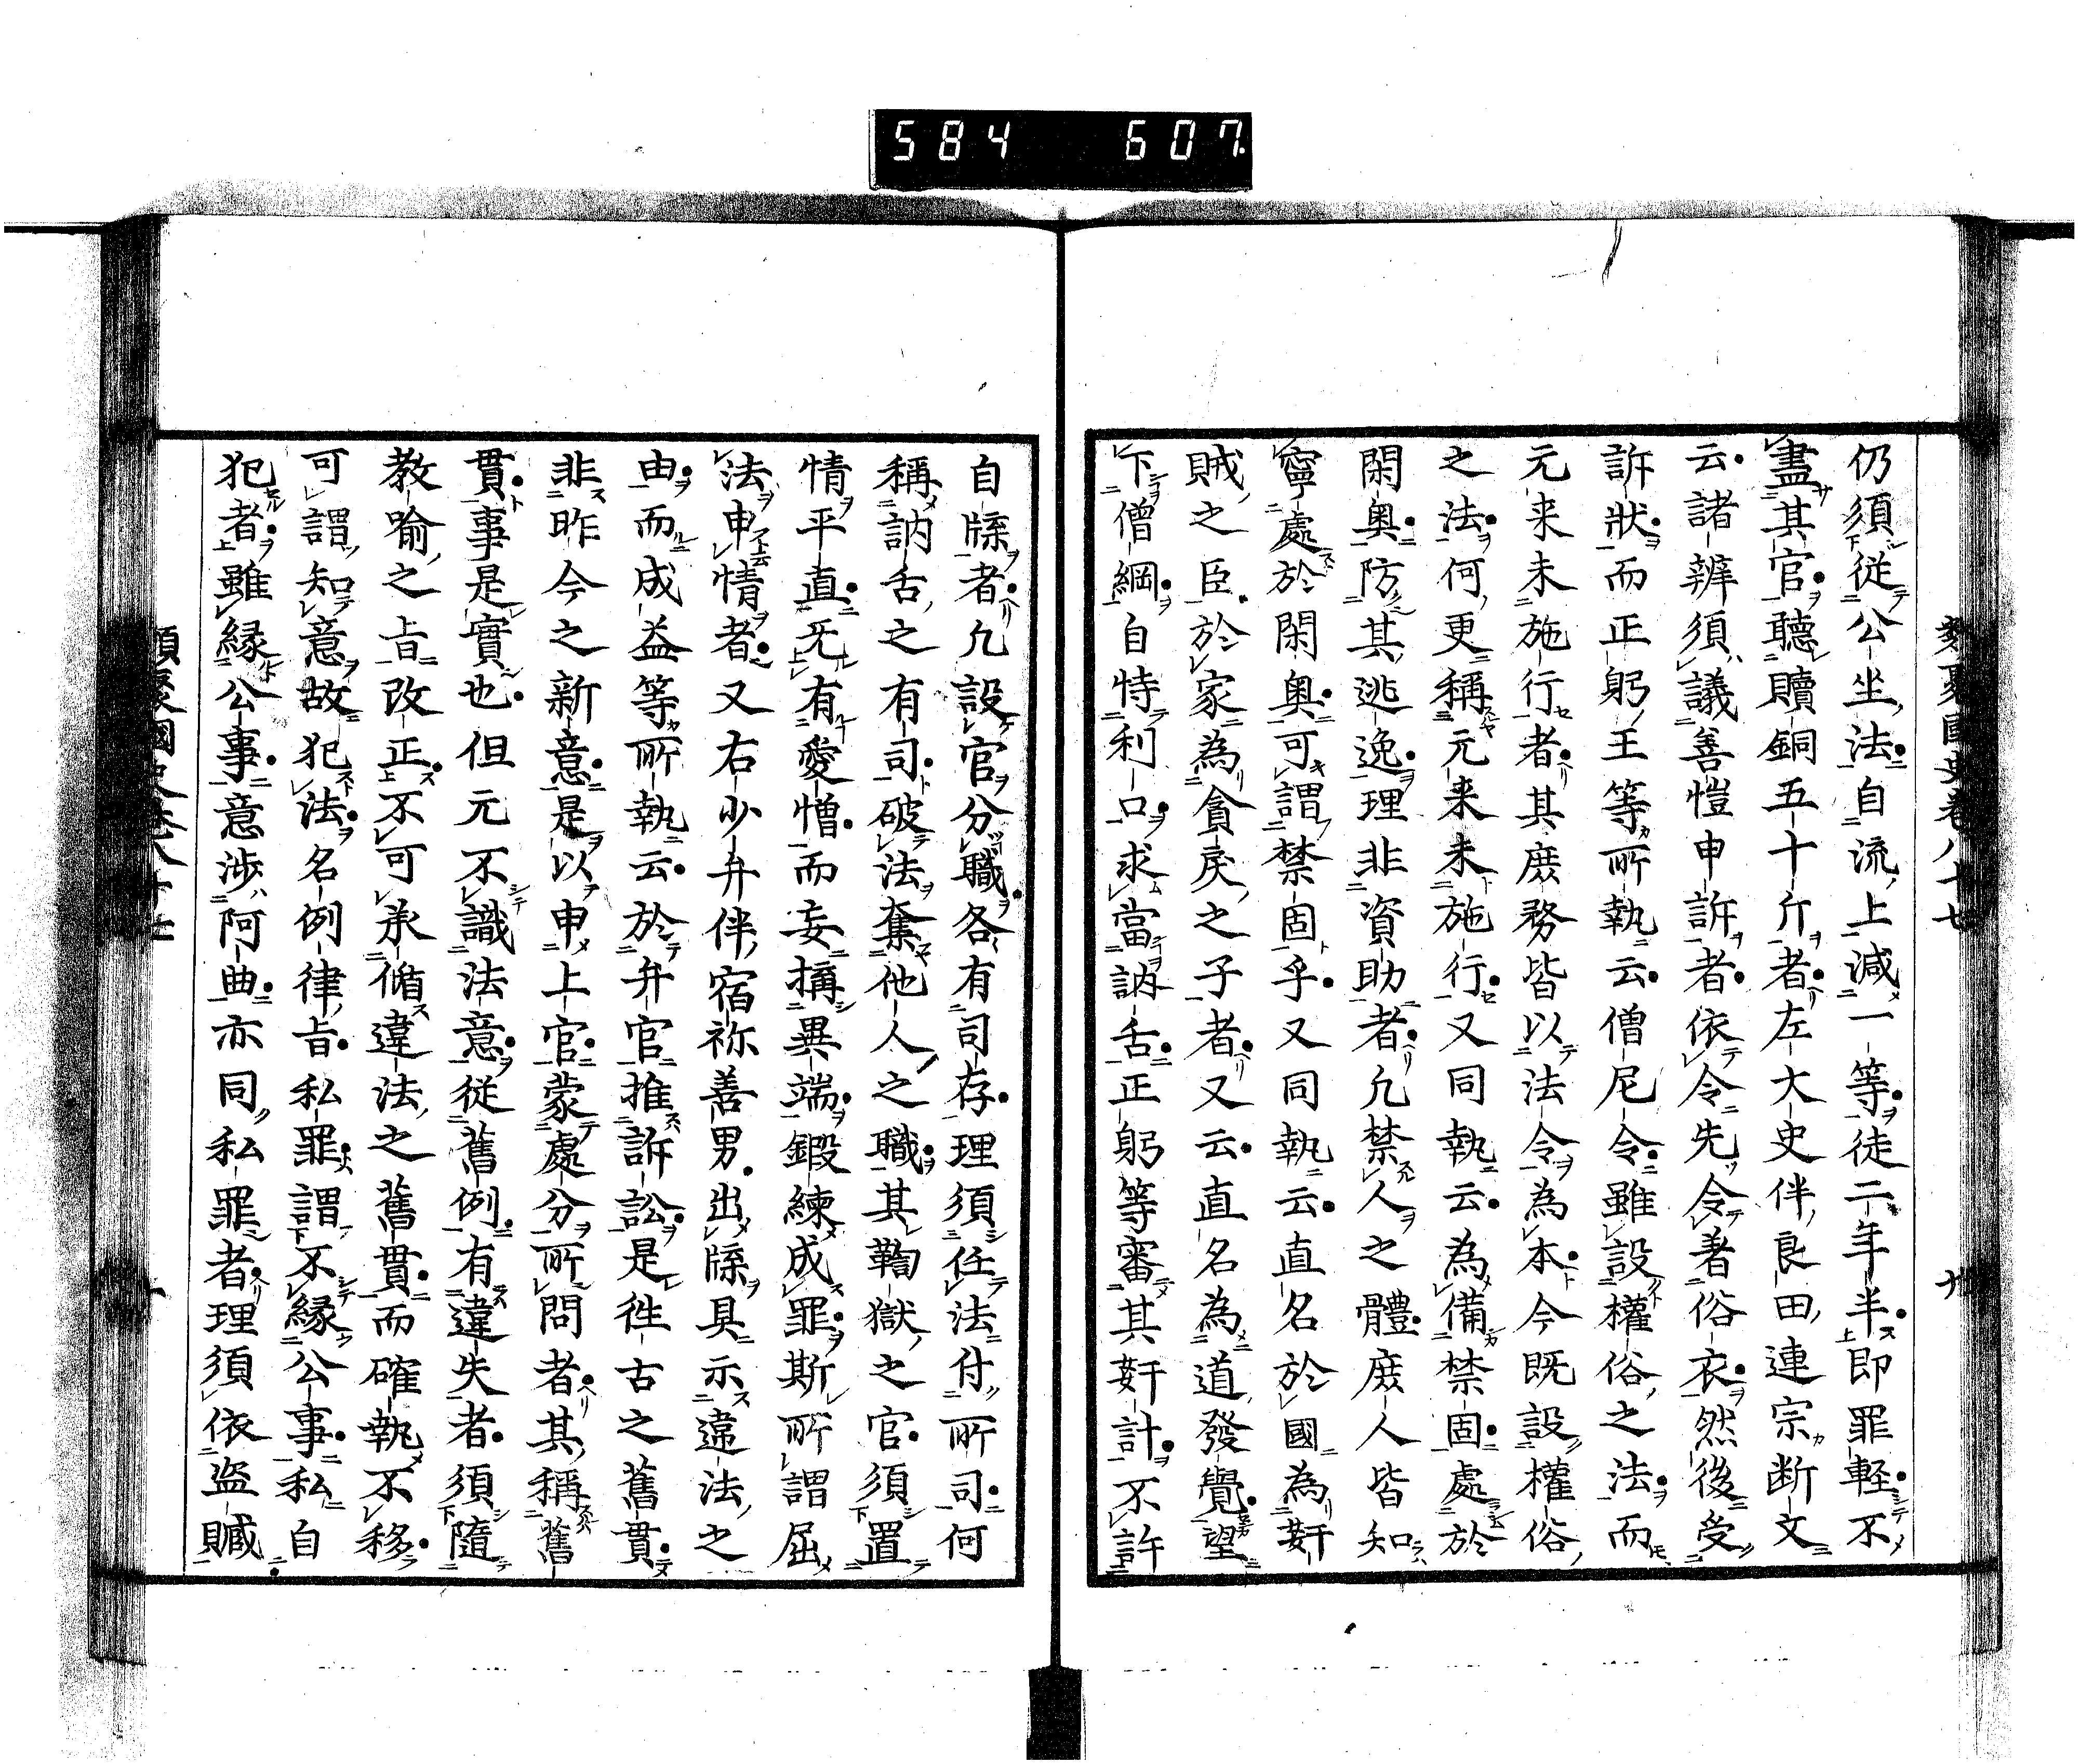 584 607.
仍須從公坐法自流上減一等徒二年半即罪軽不
盡其官聽贖銅五十斤者左大史伴良田連宗断文
云諸辨須議善愷申訴者依令先令著俗衣然後受
訴狀而正躬王等所執云僧尼令雖設權俗之法而
元来未施行者其庶務皆以法令為本今既設權俗
之法何更稱元来未施行又同執云為備禁固處於
閑奥防其逃逸理非資助者凡禁人之體庶人皆知
寧處於閑奥可謂禁固乎又同執云直名於國為姧
賊之臣於家為貪戻之子者又云直名為道發覺望
下僧綱自恃利口求當訥舌正躬等審其姧計不許
自牒者凡設官分職各有司存理須任法付所司何
稱訥舌之有司破法奪他人之職其鞫獄之官須置
情平直旡有愛憎而妄搆異端鍛練成罪斯所謂屈
法申情者又右少弁伴宿祢善男出牒具示違法之
由而成益等所執云於弁官推訴訟是徃古之舊貫
非昨今之新意是以申上官蒙處分所問者其稱舊
貫事是實也但元不識法意從舊例有違失者須隨
教喻之旨改正不可承脩違法之舊貫而確執不移
可謂知意故犯法名例律旨私罪謂不縁公事私自
犯者雖縁公事意渉阿曲亦同私罪者理須依盗贓